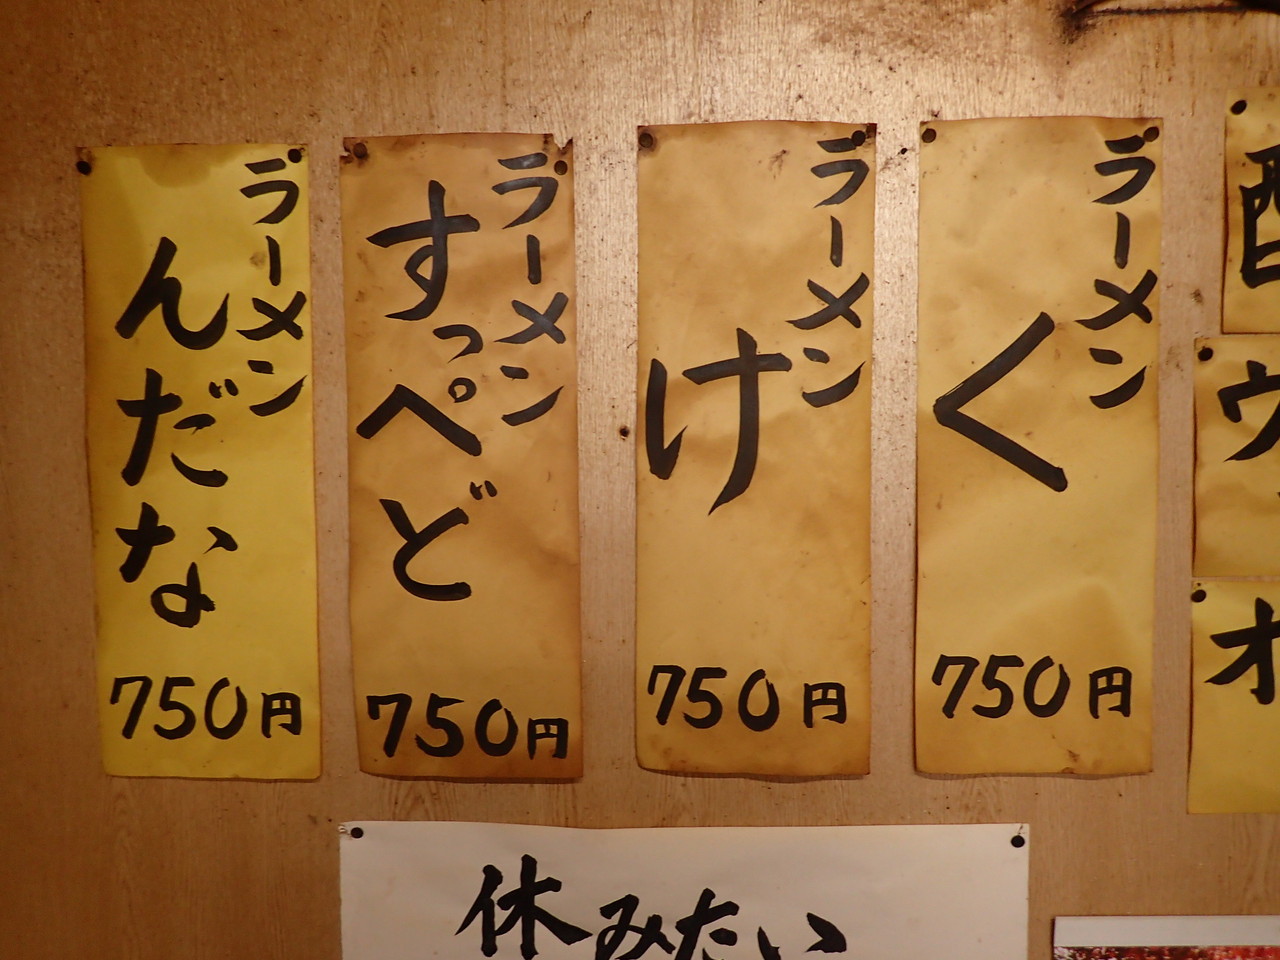 ウ
オ
ラーメン
く
750円
ラーメン
け
750円
ラーメン
すっぺど
750円
ラーメン
んだな
750円
休みたい